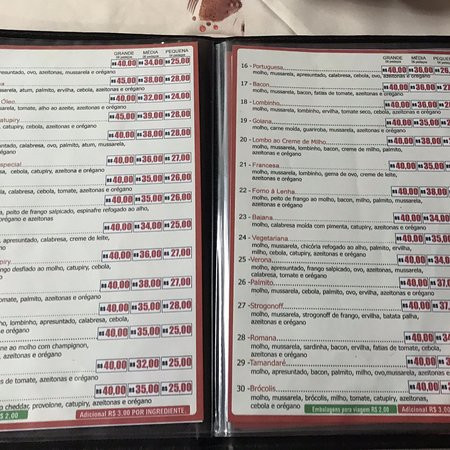 GRANDE MÉDIA PEQUENA
R$ 40,00 R$ 34,00 R$ 25,00
presuntado, ovo, azeitonas, mussarela e orégano
R$ 45,00 R$ 38,00 R$ 28,00
mussarela, atum, palmito, ervilha, cebola, azeitonas e orégano
Óleo R$ 40,00 R$ 32,00 R$ 24,00
mussarela, tomate, alho ao azeite, azeitonas e orégano
atupiry R$ 45,00 R$ 39,00 R$ 28,00
catupiry, cebola, azeitonas e orégano
R$ 45,00 R$ 38,00 R$ 28,00
apresuntado, calabresa, ovo, palmito, atum, mussarela,
azeitonas e orégano
special R$ 40,00 R$ 36,00 R$ 27,00
calabresa, cebola, azeitonas e orégano
R$ 40,00 R$ 35,00 R$ 26,00
calabresa, cebola, tomate, azeitonas e orégano
R$ 40,00 R$ 35,00 R$ 26,00
peito de frango salpicado, espinafre refogado ao alho,
azeitonas e orégano
R$ 40,00 R$ 36,00 R$ 27,00
apresuntado, calabresa, creme de leite,
azeitonas e orégano
piry R$ 40,00 R$ 36,00 R$ 27,00
frango desfiado ao molho, catupiry, cebola,
R$ 40,00 R$ 38,00 R$ 27,00
tomate, palmito, azeitonas e orégano
R$ 40,00 R$ 35,00 R$ 28,00
molho, lombinho, apresuntado, calabresa, cebola,
azeitonas e orégano
R$ 40,00 R$ 35,00 R$ 25,00
ao molho com champignon,
azeitonas e orégano
R$ 40,00 R$ 32,00 R$ 25,00
fatias de tomate, azeitonas e orégano
R$ 40,00 R$ 35,00 R$ 25,00
cheddar, provolone, catupiry, azeitonas e orégano
R$ 2,00 Adicional R$ 3,00 POR INGREDIENTE.
GRANDE MÉDIA PEQUENA
16 - Portuguesa R$ 40,00 R$ 36,00 R$ 26,
molho, mussarela, apresuntado, calabresa, cebola, ovo, azeitonas e orégano
17 - Bacon R$ 40,00 R$ 36,00
molho, mussarela, bacon, fatias de tomate, azeitonas e orégano
18 - Lombinho R$ 40,00 R$ 36,00
molho, mussarela, lombinho, ervilha, tomate seco, cebola, azeitonas e orégano
19 - Goiana R$ 40,00 R$ 35,00
molho, carne moída, guariroba, mussarela, azeitonas e orégano
20 - Lombo ao Creme de Milho R$ 40,00 R$ 36,00
molho, mussarela, lombinho, creme de milho, cebola, azeitonas e orégano
21 - Francesa R$ 40,00 R$ 36,00
molho, mussarela, lombinho, gema de ovo, creme de leite,
azeitonas e orégano
22 - Forno à Lenha R$ 40,00 R$ 38,00
molho, peito de frango ao molho, bacon, milho, palmito, mussarela,
azeitonas e orégano
23 - Baiana R$ 40,00 R$ 34,00
molho, calabresa moída com pimenta, catupiry, azeitonas e orégano
24 - Vegetariana R$ 40,00 R$ 35,00
molho, mussarela, chicória refogado ao alho, palmito, ervilha,
milho, cebola, azeitonas e orégano
25 - Verona R$ 40,00 R$ 34,0
molho, mussarela, apresuntado, frango salpicado, ovo, azeitonas,
cebola, tomate e orégano
26 - Palmito R$ 40,00 R$ 37,0
molho, mussarela, palmito, cebola, ovo, ervilha, azeitonas e orégano
27 - Strogonoff R$ 40,00 R$ 37,
molho, mussarela, strogonoff de frango, ervilha, batata palha,
azeitonas e orégano
28 - Romana R$ 40,00 R$ 34
molho, mussarela, sardinha, bacon, ervilha, fatias de tomate, cebola,
azeitonas e orégano
29 - Tamandaré R$ 40,00
molho, apresuntado, bacon, palmito, milho, ovo, mussarela, azeitonas e orégano
30 - Brócolis R$ 40,00
molho, mussarela, brócolis, milho, tomate, bacon, catupiry,
cebola, azeitonas e orégano
Embalagens para viagem R$ 2,00 Adicional R$ 3,0